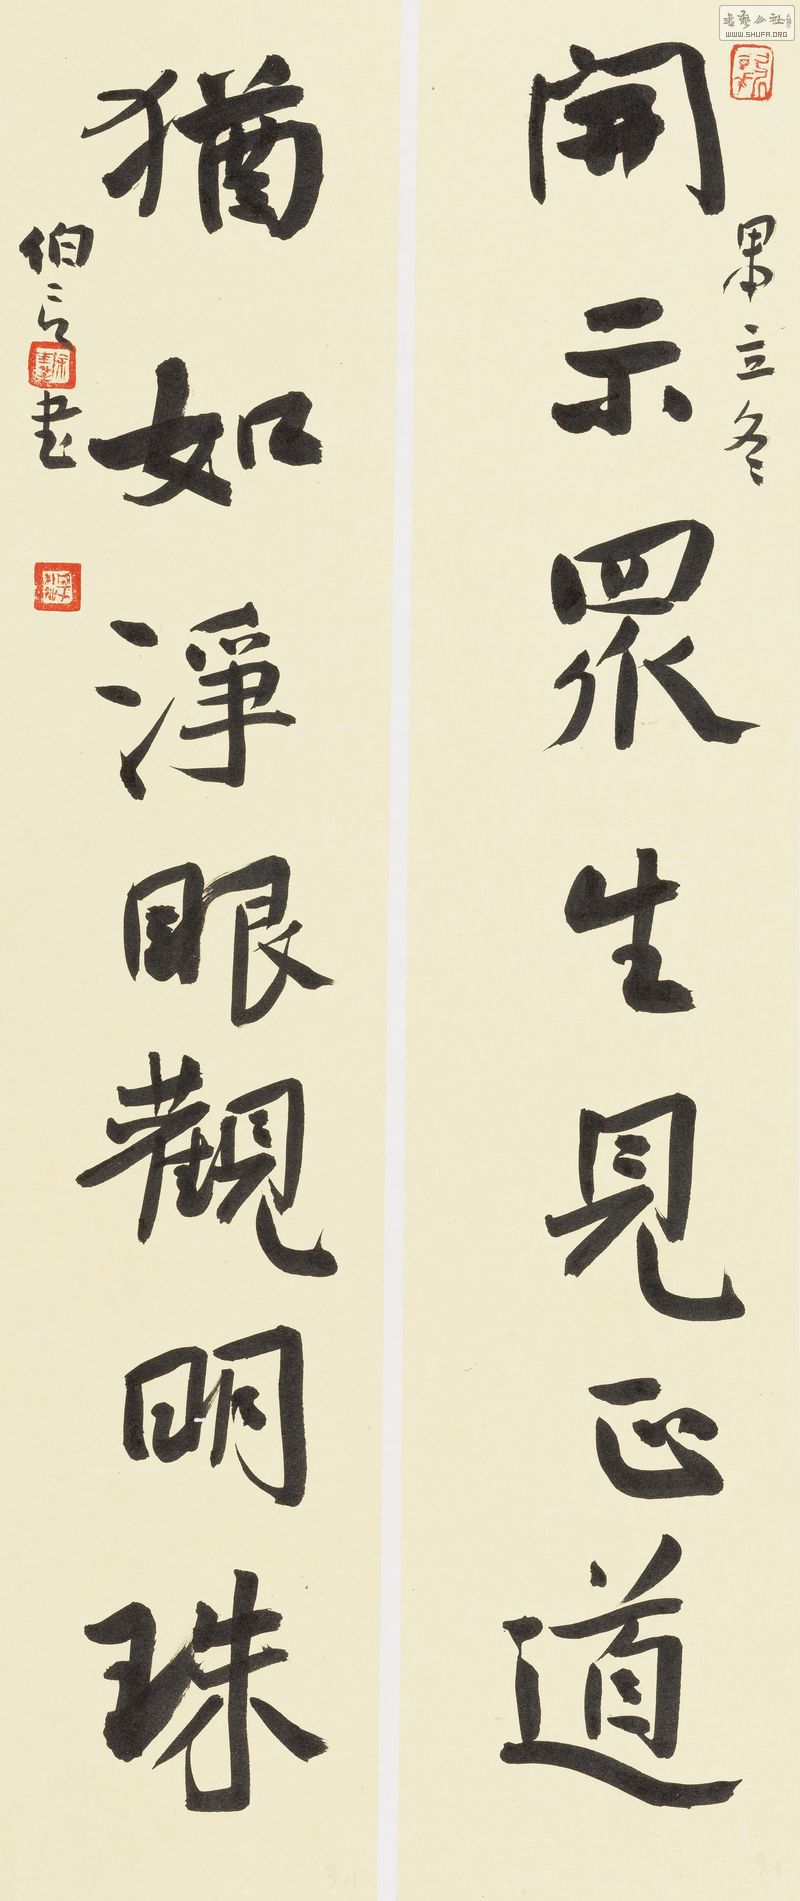 書藝公社
WWW.SHUFA.ORG
開示眾生見正道
立冬
猶如淨眼觀明珠
伯言書